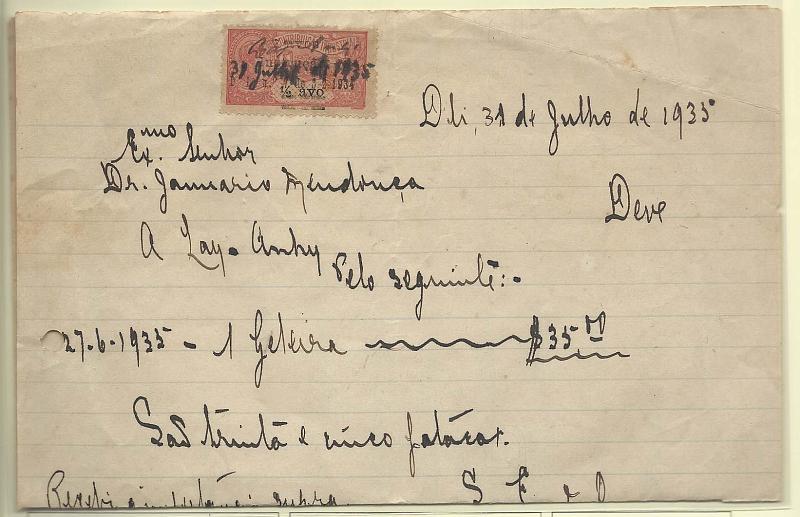 31 Julho de 1935
1934
½ avo
Dili, 31 de Julho de 1935
Ex.mo Senhor
Dr. Januario Mendonça
Deve
A Lay-Anhy
Pelo seguinte:-
27-6-1935 - 1 Geleira $35.00
São trinta e cinco patacas.
Recebi a importancia supra
S. E. e O